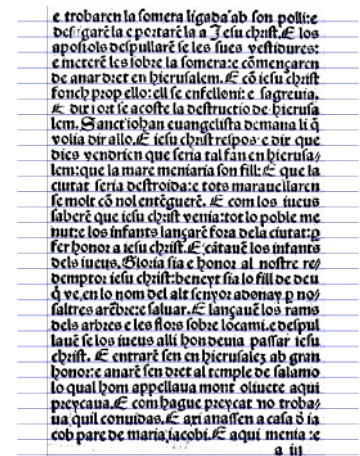 e trobaren la somera ligada ab son polli:e
desligarẽ la e portarẽ la a Jesu christ. E los
apostols despullarẽ se les sues vestidures:
e meterẽ les sobre la somera:e començaren
de anar dret en hierusalem. E cõ iesu christ
fonch prop ello: ell se enfelloni: e sagreuia.
E dix tost se acoste la destructio de hierusa
lem. Sanct iohan euangelista demana li q̃
volia dir allo. E iesu christ respos: e dir que
dies vendrien que seria tal fan en hierusa/
lem:que la mare meniaria son fill: E que la
ciutat seria destroida:e tots marauellaren
se molt cõ nol entẽguerẽ. E com los iueus
saberẽ que iesu christ venia:tot lo poble me
nut:e los infants lançarẽ fora dela ciutat: ꝑ
fer honor a iesu christ. E cãtauẽ los infants
dels iueus. Gloria sia e honor al nostre re/
demptor iesu christ:beneyt sia lo fill de deu
q̃ ve,en lo nom del alt senyor adonay ꝑ no/
saltres arẽbre:e saluar. E lançauẽ los rams
dels arbres e les flors sobre lo cami.e despul
lauẽ se los iueus alli hon deuia passar iesu
christ. E entrarẽ sen en hierusalẽz ab gran
honor:e anarẽ sen dret al temple de salamo
lo qual hom appellaua mont oliuete aqui
preycaua. E com hague preycat no troba/
ua qui l conuidas. E axi anassen a casa d̃ ia
cob pare de maria iacobi. E aqui menia :e
a iii